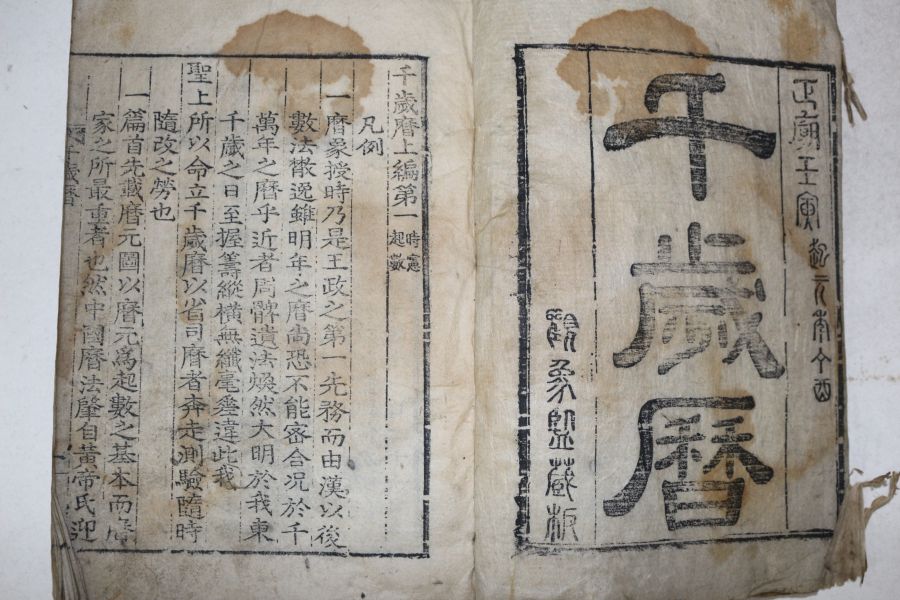 正廟壬寅起元
千歲曆
觀象監藏板
千歲曆上編第一 時憲起數
凡例
一曆象授時乃是王政之第一先務而由漢以後
數法散逸雖明年之曆尙恐不能密合況於千
萬年之曆乎近者周髀遺法煥然大明於我東
千歲之日至握籌縱橫無纖毫差違此我
聖上所以命立千歲曆以省司曆者奔走測驗隨時
隨改之勞也
一篇首先載曆元圖以曆元爲起數之基本而曆
家之所最重者也然中國曆法肇自黃帝氏迎
歲曆